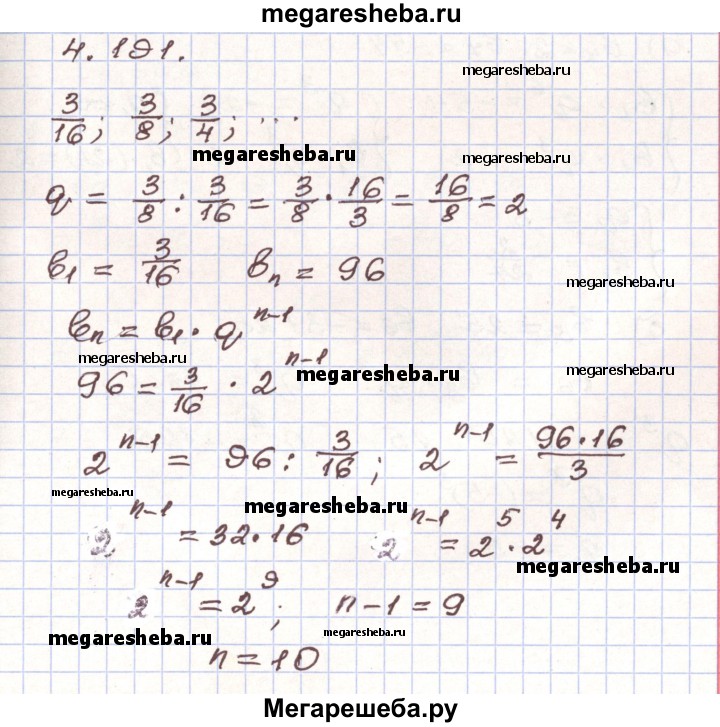 megaresheba.ru
4.191.
megaresheba.ru
3/16; 3/8; 3/4; ...
megaresheba.ru
megaresheba.ru
q = 3/8 : 3/16 = 3/8 · 16/3 = 16/8 = 2
в₁ = 3/16 вₙ = 96
megaresheba.ru
вₙ = в₁ · q^(n-1)
megaresheba.ru
96 = 3/16 · 2^(n-1)
megaresheba.ru
megaresheba.ru
2^(n-1) = 96 : 3/16; 2^(n-1) = 96·16/3
megaresheba.ru
megaresheba.ru
2^(n-1) = 32·16 2^(n-1) = 2^5 · 2^4
megaresheba.ru
2^(n-1) = 2^9; n-1 = 9
megaresheba.ru
megaresheba.ru
n = 10
Мегарешеба.ру